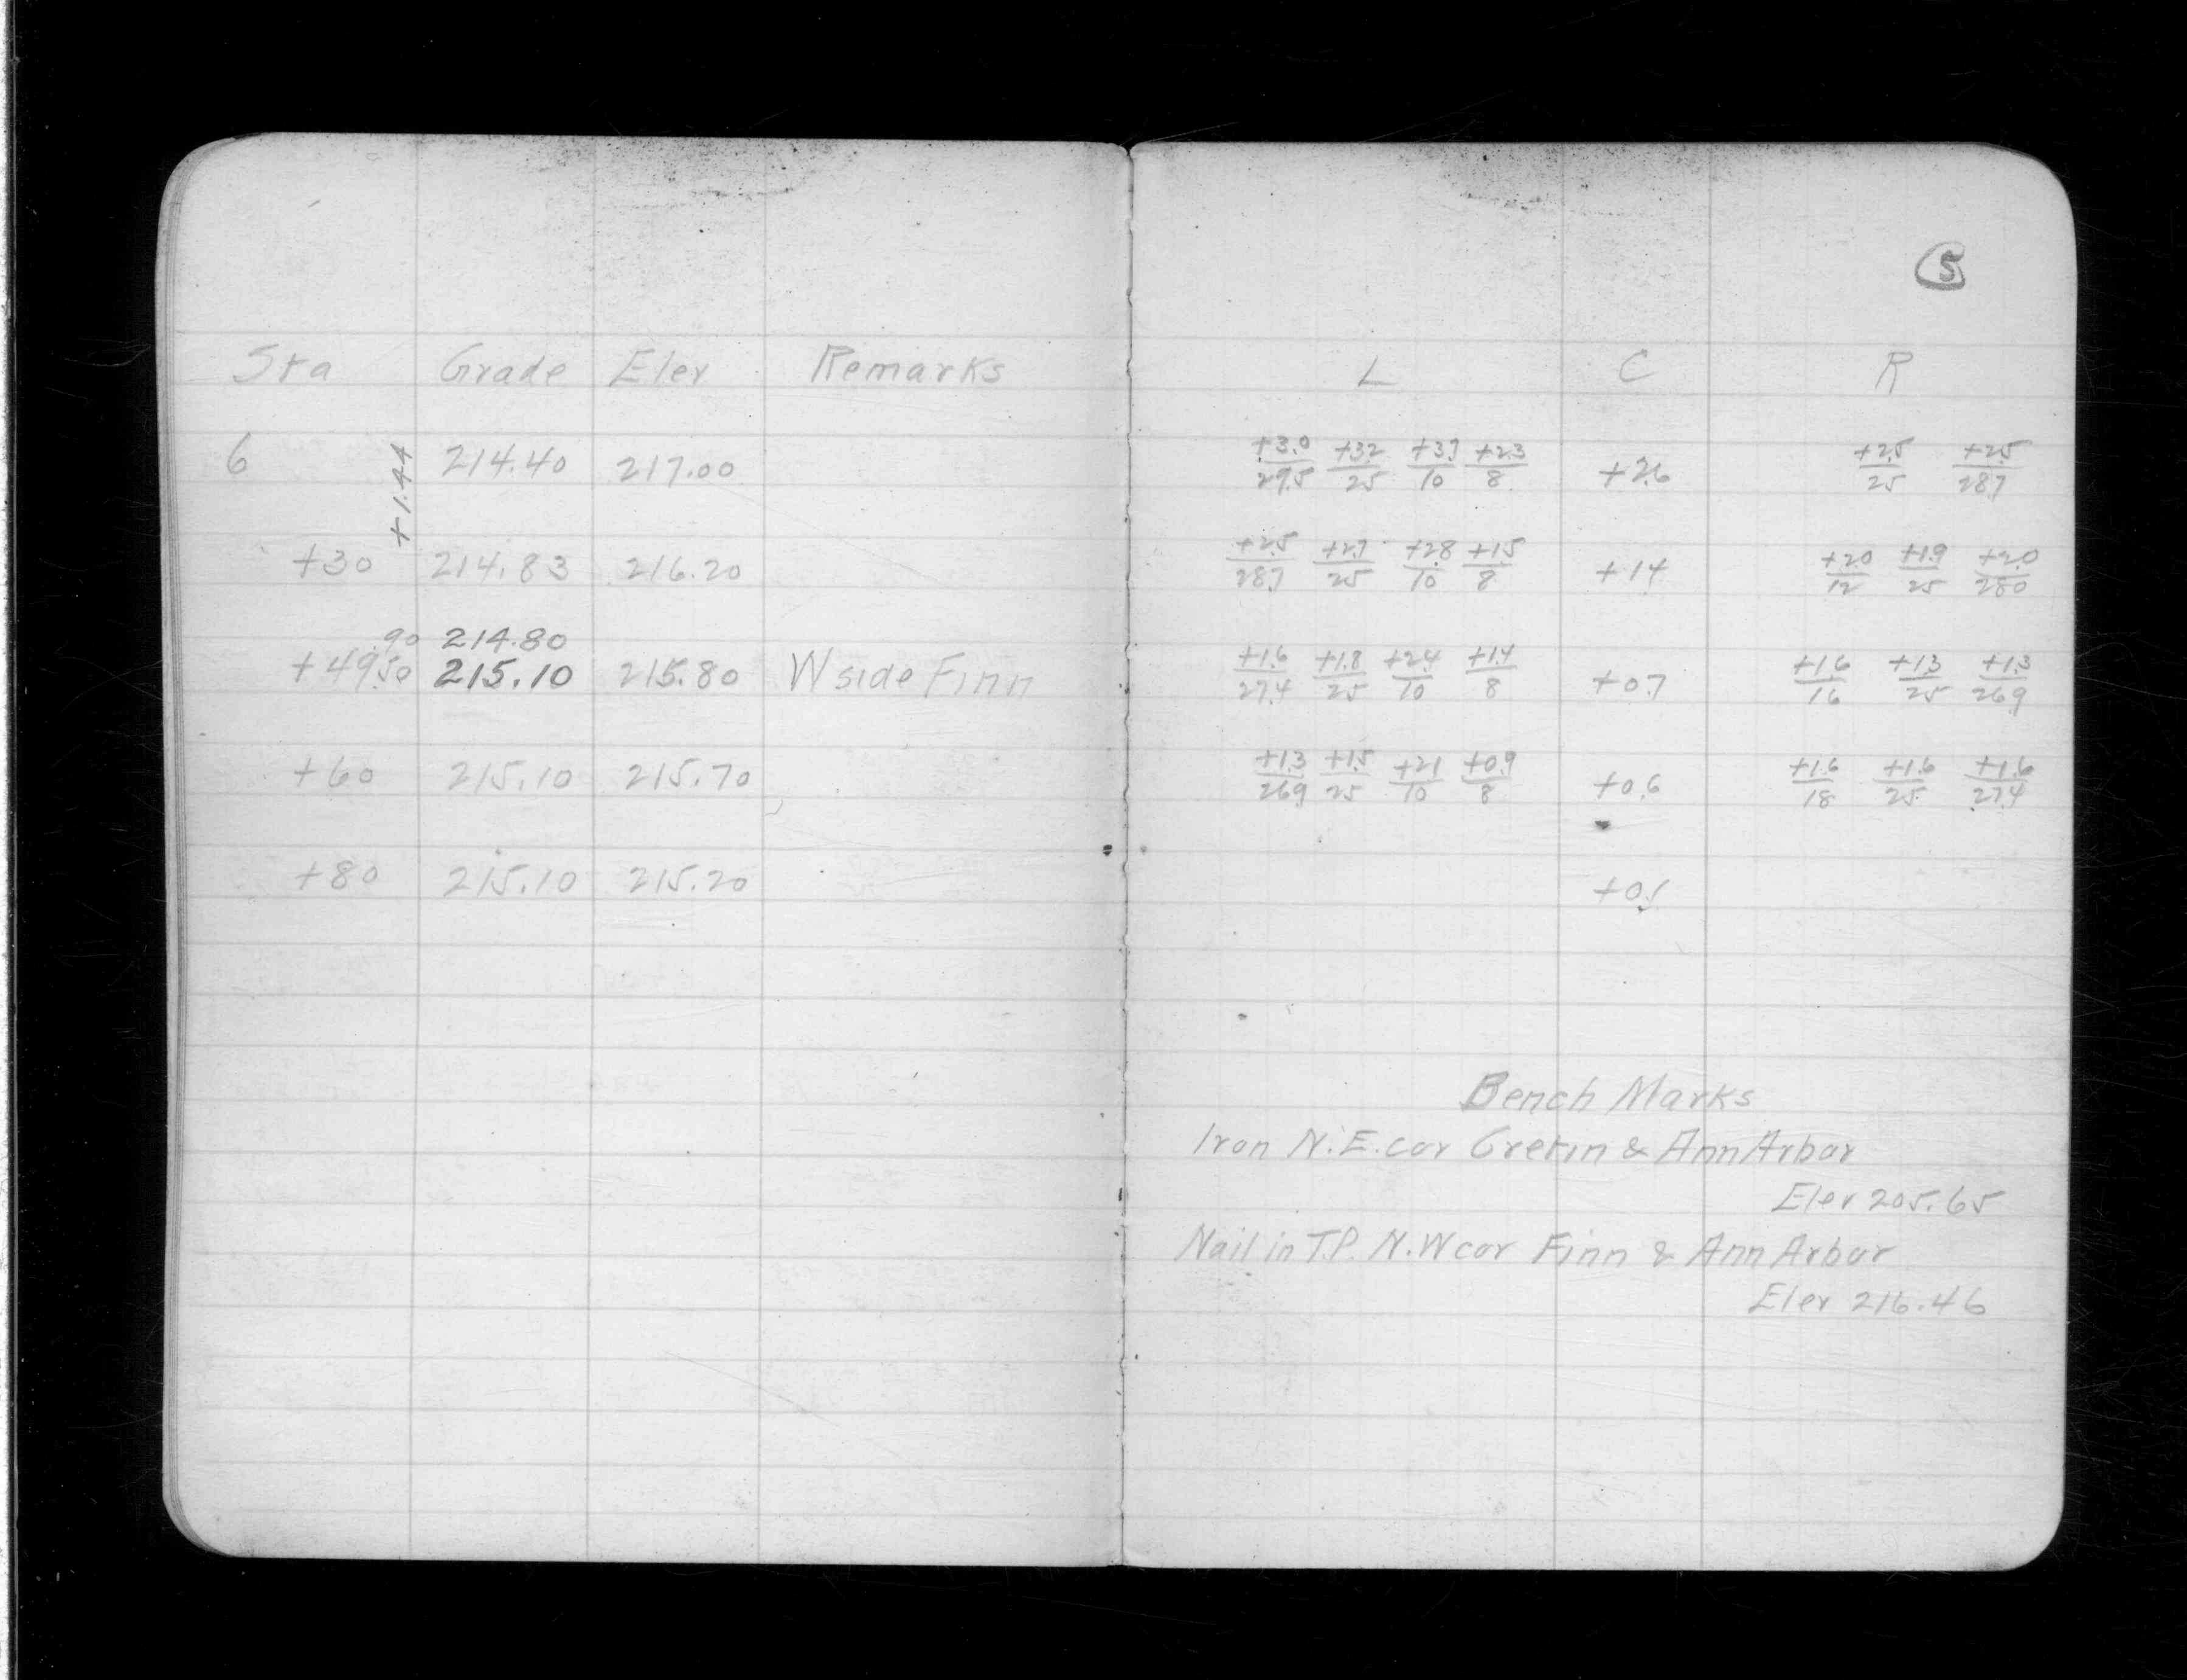 5
Sta Grade Elev Remarks L C R
6 +1.44 214.40 217.00 +3.0/29.5 +3.2/25 +3.7/10 +2.3/8 +2.6 +2.5/25 +2.5/28.7
+30 214.83 216.20 +2.5/28.7 +2.7/25 +2.8/10 +1.5/8 +1.4 +2.0/12 +1.9/25 +2.0/28.0
90 214.80
+49.50 215.10 215.80 W side Finn +1.6/27.4 +1.8/25 +2.4/10 +1.4/8 +0.7 +1.6/16 +1.3/25 +1.3/26.9
+60 215.10 215.70 +1.3/26.9 +1.5/25 +2.1/10 +0.9/8 +0.6 +1.6/18 +1.6/25 +1.6/27.4
+80 215.10 215.20 +0.1
Bench Marks
Iron N.E. cor Cretin & Ann Arbor
Elev 205.65
Nail in T.P. N.W cor Finn & Ann Arbor
Elev 216.46